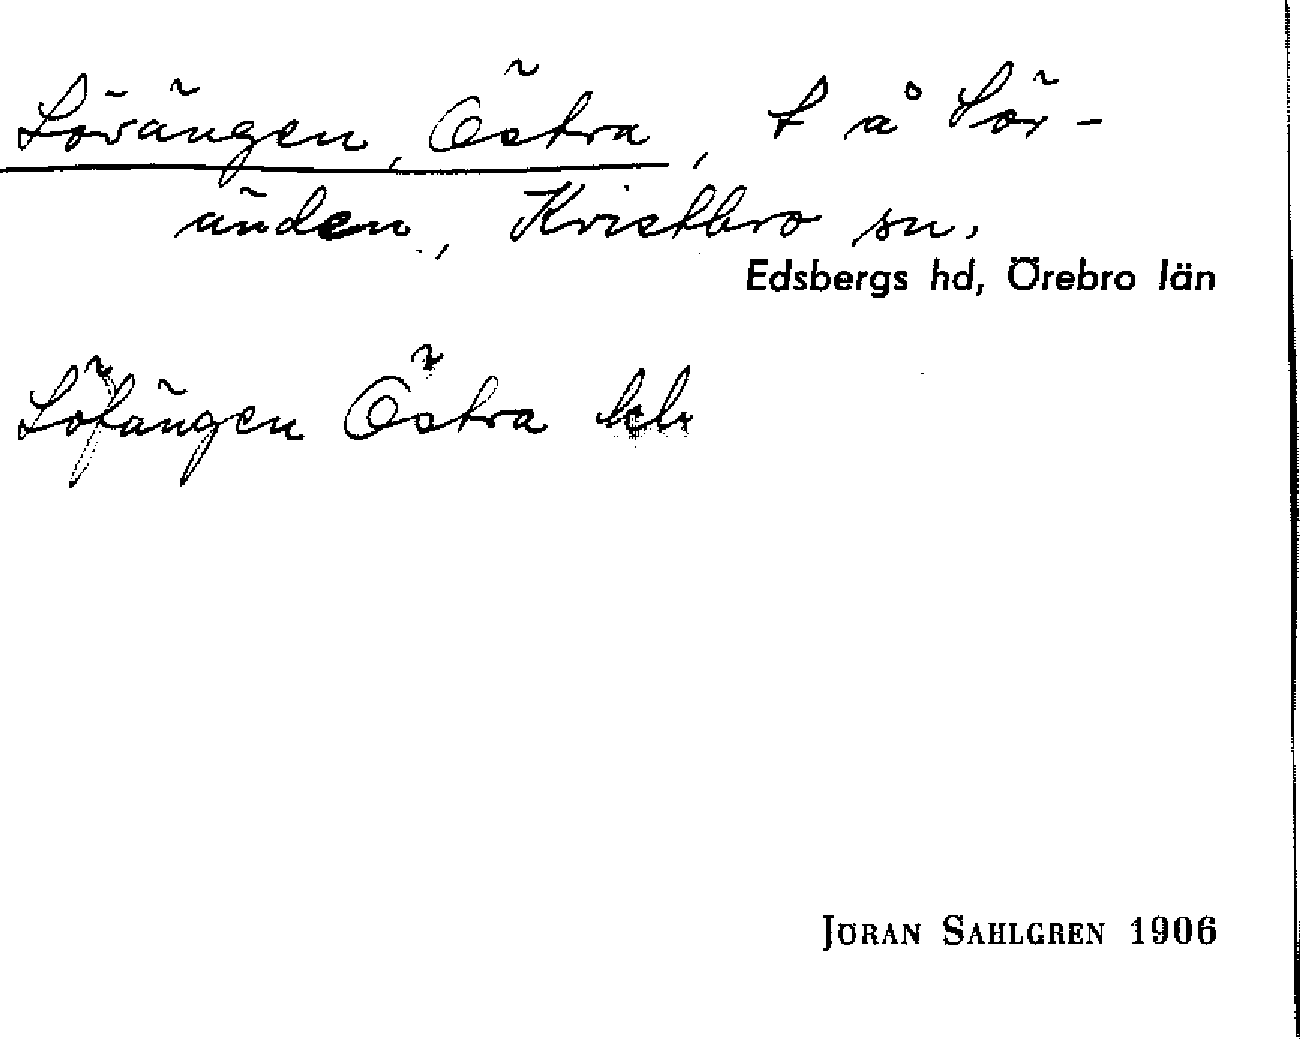 Lövängen, Östra, t å Sör-
änden, Kvistbro sn.
Edsbergs hd, Örebro län
Löfängen Östra
JÖRAN SAHLGREN 1906